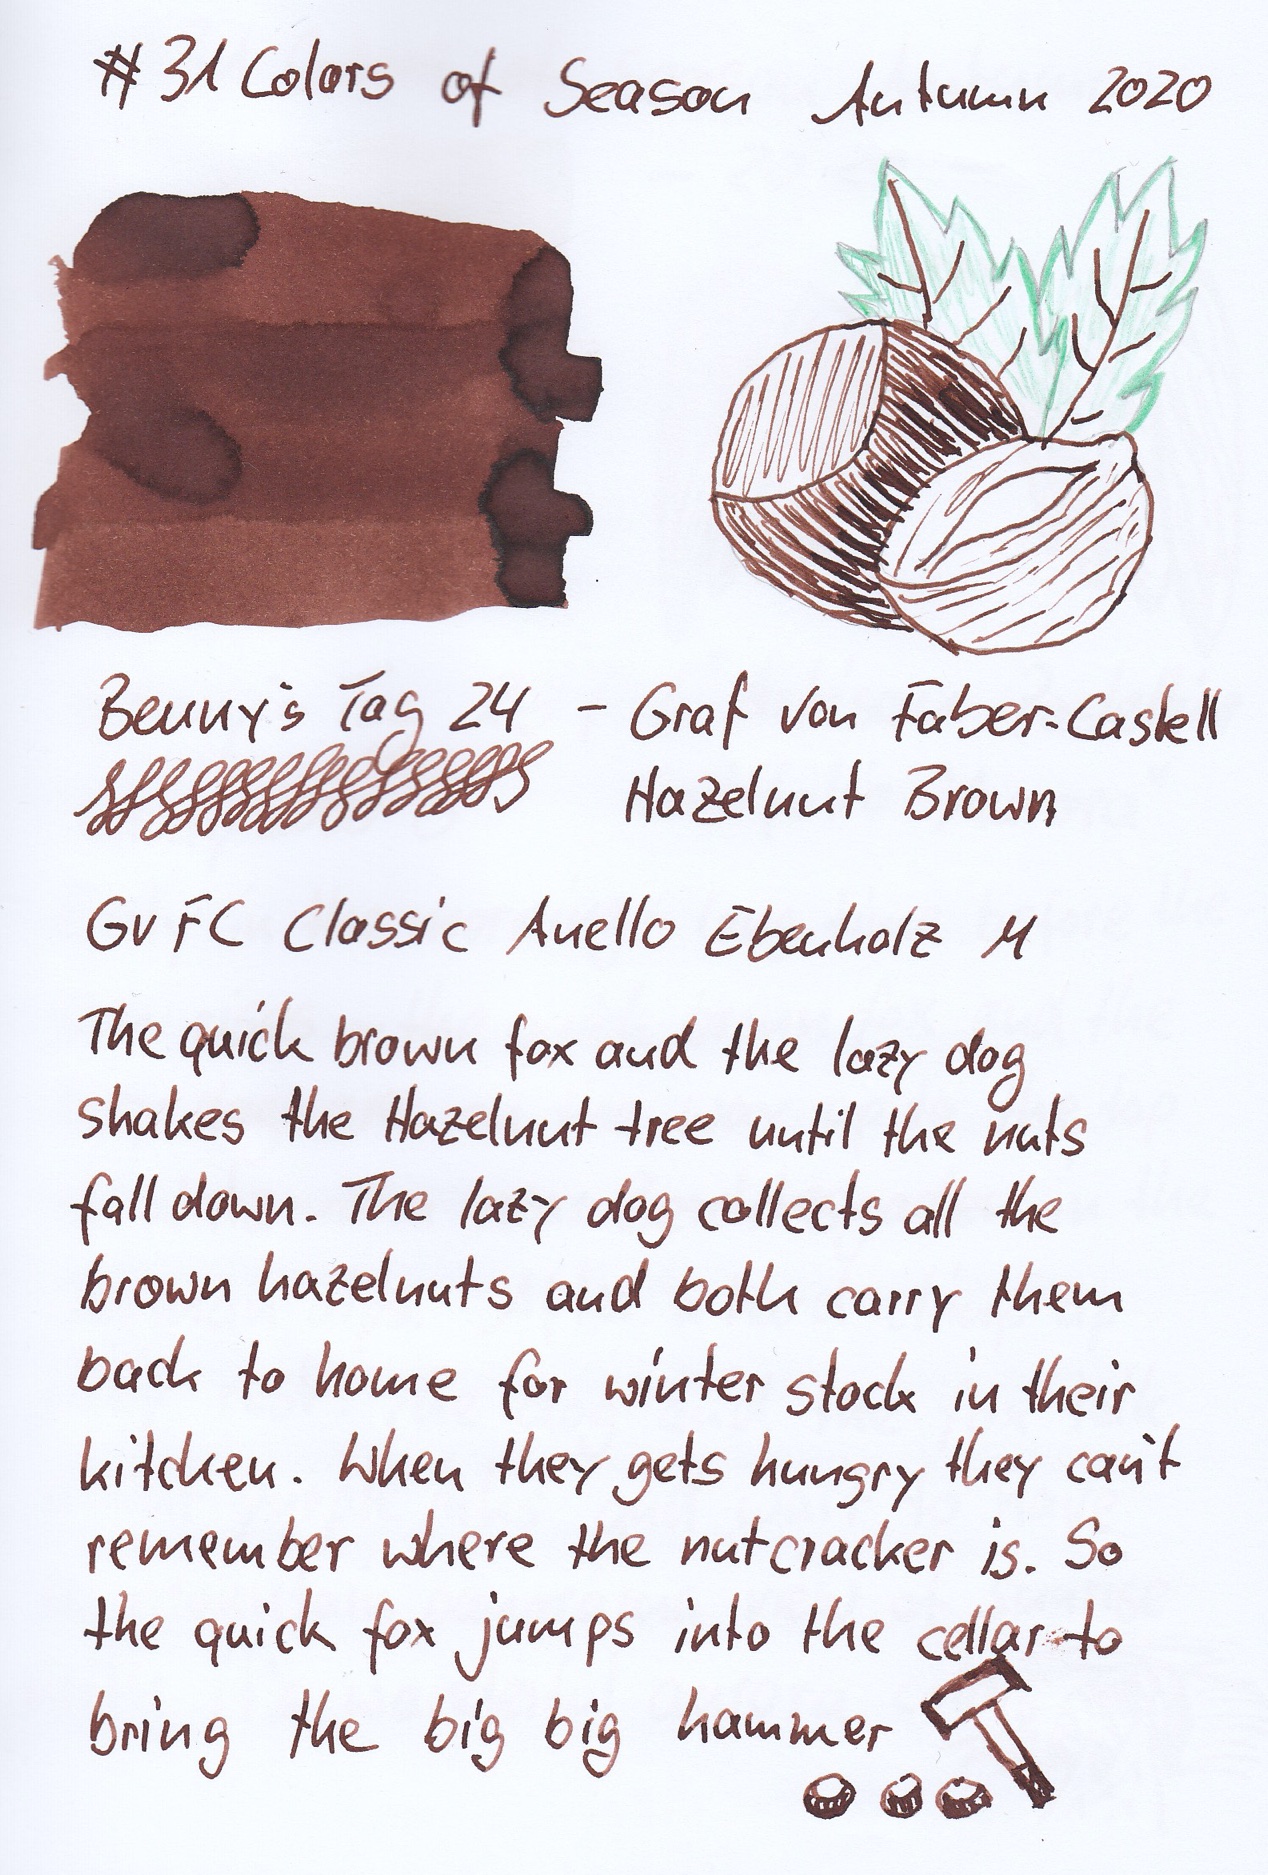 #31 Colors of Season Autumn 2020
Benny's Tag 24 - Graf von Faber-Castell
Hazelnut Brown
GvFC Classic Anello Ebenholz M
The quick brown fox and the lazy dog
shakes the Hazelnut tree until the nuts
fall down. The lazy dog collects all the
brown hazelnuts and both carry them
back to home for winter stock in their
kitchen. When they gets hungry they can't
remember where the nutcracker is. So
the quick fox jumps into the cellar to
bring the big big hammer